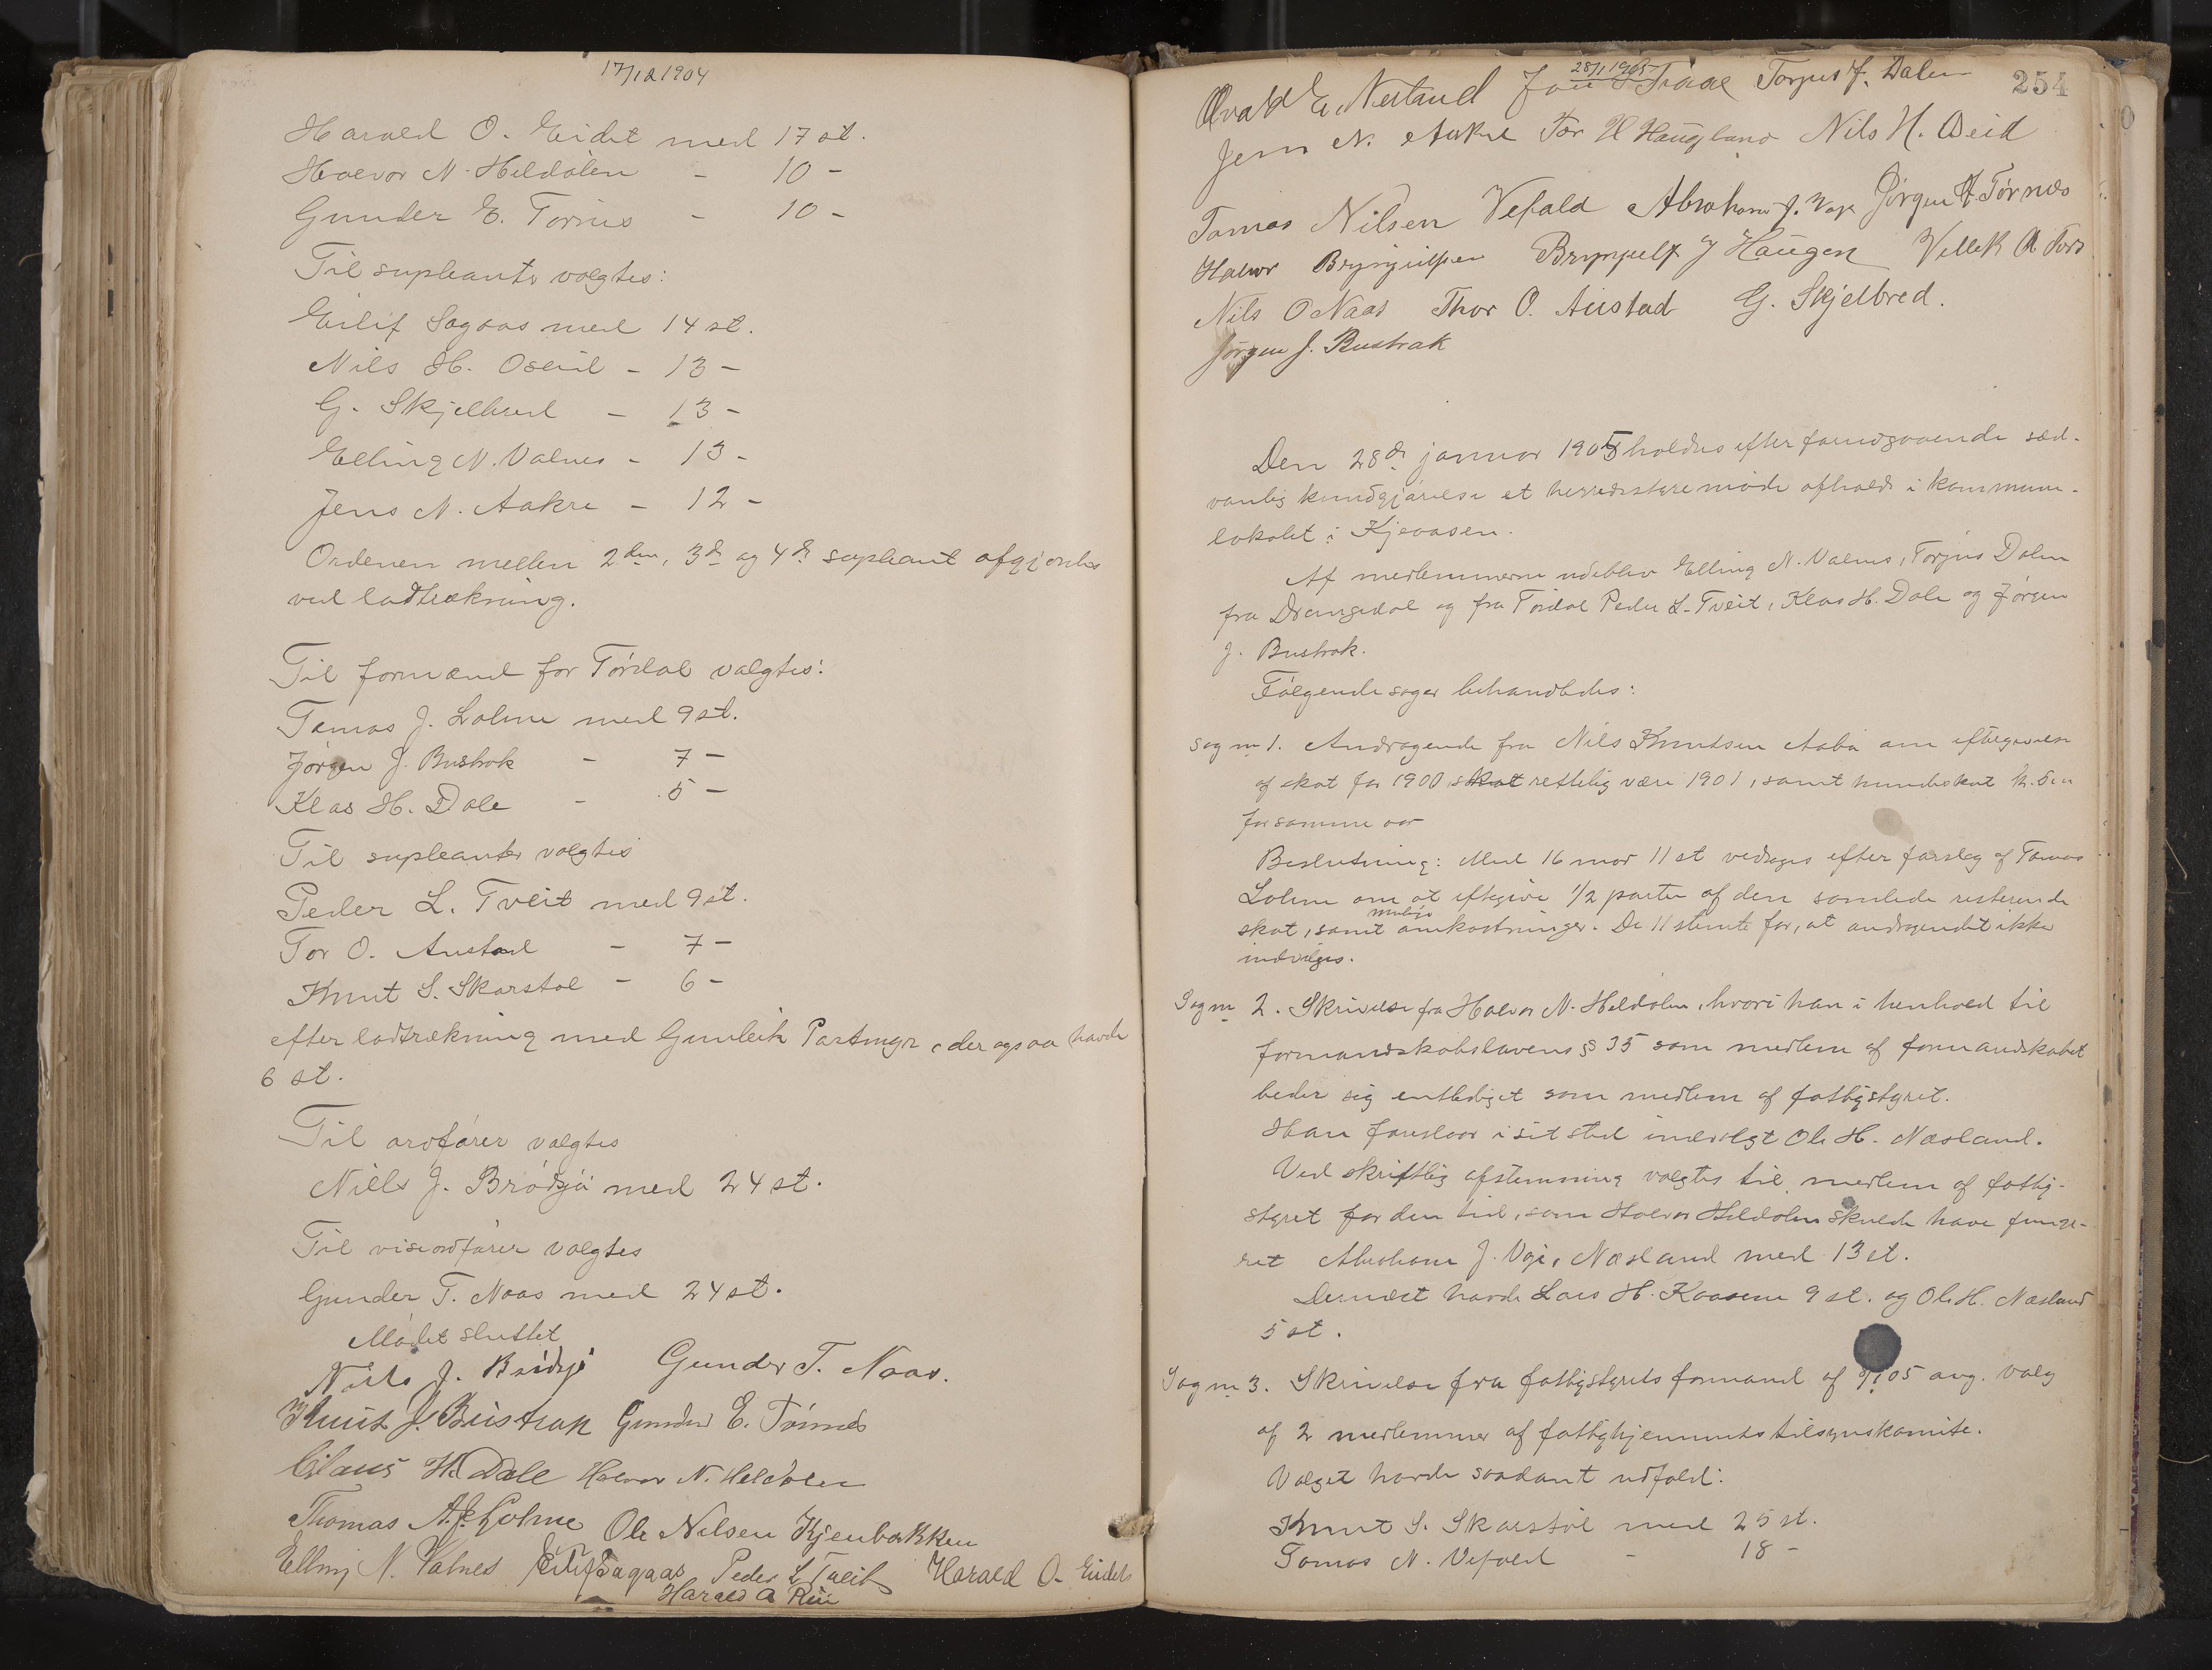 17/12 1904
Harald O. Eidet med 17 st.
Halvor N. Heldalen - 10 -
Gunder E. Tørnes - 10 -
Til supleanter valgtes:
Eilif Sagaas med 14 st.
Nils H. Oseid - 13 -
G. Skjelbred - 13 -
Elling N. Valnes - 13 -
Jens N. Aakre - 12 -
Ordenen mellem 2den, 3de og 4de supleant afgjordes
ved lodtrækning.
Til formænd for Tørdal valgtes:
Tomas J. Lolme med 9 st.
Jørgen J. Bustrak - 7 -
Klas H. Dale - 5 -
Til supleanter valgtes
Peder L. Tveit med 9 st.
Tor O. Austad - 7 -
Knut S. Skarstøl - 6 -
efter lodtrækning med Gunleik, der ogsaa havde
6 st.
Til ordfører valgtes
Niels J. Brødsjø med 24 st.
Til viseordfører valgtes
Gunder T. Naas med 24 st.
Mødet sluttet
Niels J. Brødsjø Gunder T. Naas.
Knut J. Bustrak Gunder E. Tørnes
Claus H. Dale Halvor N. Heldalen
Thomas Lolme Ole Nilsen Kjenbakken
Elling N. Valnes Eilif Sagaas Peder L Tveit Harald O. Eidet
Harald A
28/1 1905
254
E. Nesland Jon Torjus J. Dalen
Jens N. Aakre Tor H Haugland Nils H. Oseid
Tomas Nilsen Vefald Abraham J. Voje Jørgen Tørnes
Halvor Brynjulfsen Brynjulf J Haugen
Nils O Naas Thor O. Austad G. Skjelbred.
Jørgen J. Bustrak
Den 28de januar 1905 holdtes efter forudgaaende sæd-
vanlig kundgjørelse et herredsstyremøde afholdt i kommune-
lokalet i Kjeaasen.
Af medlemmerne udeblev Elling N. Valnes, Torjus Dalen
fra Drangedal og fra Tørdal Peder L. Tveit, Klas H. Dale og Jørgen
J. Bustrak.
Følgende sager behandledes:
Sag nr 1. Andragende fra Nils Knutsen Aabø om eftergivelse
af skat for 1900 skat rettelig være 1901, samt hundeskat kr. 5.00
for samme aar
Beslutning: Med 16 mod 11 st vedtoges efter forslag af Tomas
Lolme om at eftergive 1/2 parten af den samlede resterende
skat, samt mulige omkostninger. De 11 stemte for, at andragendet ikke
indvilges.
Sag nr 2. Skrivelse fra Halvor N. Heldalen, hvori han i henhold til
formandskabslovens § 35 som medlem af formandskabet
beder sig entlediget som medlem af fattigstyret.
Han foreslaar i sit sted indvalgt Ole H. Næsland.
Ved skriftlig afstemning valgtes til medlem af fattig-
styret for den tid, som Halvor Heldalen skulde have funge-
ret Abraham J. Voje, Næsland med 13 st.
Dernæst havde Lars H. Kaasene 9 st. og Ole H. Næsland
5 st.
Sag nr 3. Skrivelse fra fattigstyrets formand af 05 ang. valg
af 2 medlemmer af fattighjemmets tilsynskomite.
Valget havde saadant udfald:
Knut S. Skarstøl med 25 st.
Tomas N. Vefald - 18 -